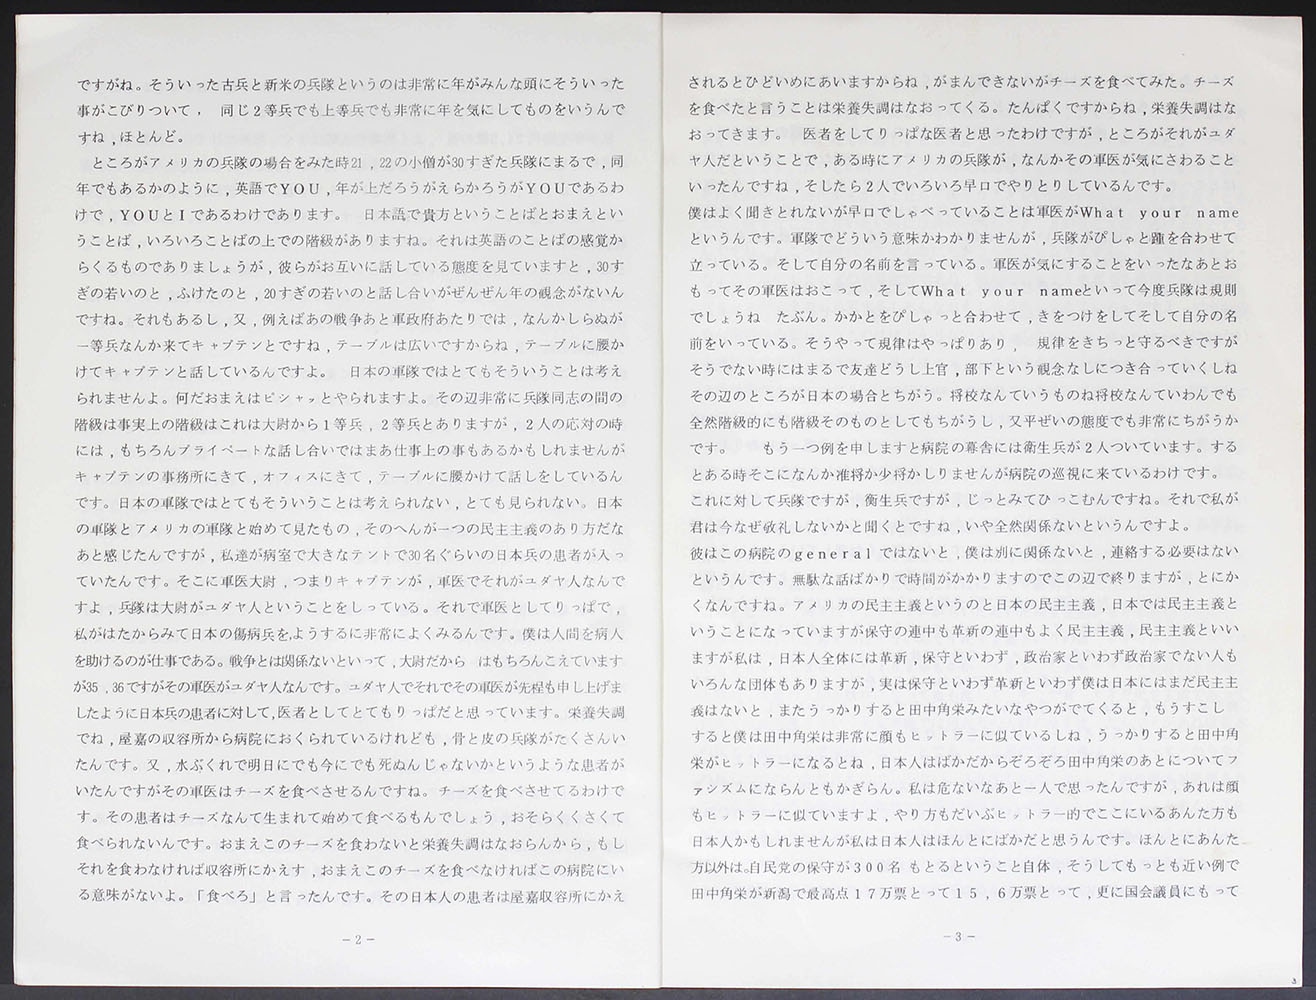 ですがね。そういった古兵と新米の兵隊というのは非常に年がみんな頭にそういった
事がこびりついて，　同じ2等兵でも上等兵でも非常に年を気にしてものをいうんで
すね，ほとんど。
　ところがアメリカの兵隊の場合をみた時21，22の小僧が30すぎた兵隊にまるで，同
年でもあるかのように，英語でＹＯＵ，年が上だろうがえらかろうがＹＯＵであるわ
けで，ＹＯＵとＩであるわけであります。　日本語で貴方ということばとおまえとい
うことば，いろいろことばの上での階級がありますね。それは英語のことばの感覚か
らくるものでありましょうが，彼らがお互いに話している態度を見ていますと，30す
ぎの若いのと，ふけたのと，20すぎの若いのと話し合いがぜんぜん年の観念がないん
ですね。それもあるし，又，例えばあの戦争あと軍政府あたりでは，なんかしらぬが
一等兵なんか来てキャプテンとですね，テーブルは広いですからね，テーブルに腰か
けてキャプテンと話しているんですよ。　日本の軍隊ではとてもそういうことは考え
られませんよ。何だおまえはピシャッとやられますよ。その辺非常に兵隊同志の間の
階級は事実上の階級はこれは大尉から１等兵，２等兵とありますが，２人の応対の時
には，もちろんプライベートな話し合いではまあ仕事上の事もあるかもしれませんが
キャプテンの事務所にきて，オフィスにきて，テーブルに腰かけて話しをしているん
です。日本の軍隊ではとてもそういうことは考えられない，とても見られない。日本
の軍隊とアメリカの軍隊と始めて見たもの，そのへんが一つの民主主義のあり方だな
あと感じたんですが，私達が病室で大きなテントで30名ぐらいの日本兵の患者が入っ
ていたんです。そこに軍医大尉，つまりキャプテンが，軍医でそれがユダヤ人なんで
すよ，兵隊は大尉がユダヤ人ということをしっている。それで軍医としてりっぱで，
私がはたからみて日本の傷病兵を，ようするに非常によくみるんです。僕は人間を病人
を助けるのが仕事である。戦争とは関係ないといって，大尉だから　はもちろんこえています
が35，36ですがその軍医がユダヤ人なんです。ユダヤ人でそれでその軍医が先程も申し上げま
したように日本兵の患者に対して，医者としてとてもりっぱだと思っています。栄養失調
でね，屋嘉の収容所から病院におくられているけれども，骨と皮の兵隊がたくさんい
たんです。又，水ぶくれで明日にでも今にでも死ぬんじゃないかというような患者が
いたんですがその軍医はチーズを食べさせるんですね。チーズを食べさせてるわけで
す。その患者はチーズなんて生まれて始めて食べるもんでしょう，おそらくくさくて
食べられないんです。おまえこのチーズを食わないと栄養失調はなおらんから，もし
それを食わなければ収容所にかえす，おまえこのチーズを食べなければこの病院にい
る意味がないよ。「食べろ」と言ったんです。その日本人の患者は屋嘉収容所にかえ
－2－
されるとひどいめにあいますからね，がまんできないがチーズを食べてみた。チーズ
を食べたと言うことは栄養失調はなおってくる。たんぱくですからね，栄養失調はな
おってきます。　医者をしてりっぱな医者と思ったわけですが，ところがそれがユダ
ヤ人だということで，ある時にアメリカの兵隊が，なんかその軍医が気にさわること
いったんですね，そしたら２人でいろいろ早口でやりとりしているんです。
僕はよく聞きとれないが早口でしゃべっていることは軍医がＷｈａｔ ｙｏｕｒ ｎａｍｅ
というんです。軍隊でどういう意味かわかりませんが，兵隊がぴしゃと踵を合わせて
立っている。そして自分の名前を言っている。軍医が気にすることをいったなあとお
もってその軍医はおこって，そしてＷｈａｔ ｙｏｕｒ ｎａｍｅといって今度兵隊は規則
でしょうね　たぶん。かかとをぴしゃっと合わせて，きをつけをしてそして自分の名
前をいっている。そうやって規律はやっぱりあり，　規律をきちっと守るべきですが
そうでない時にはまるで友達どうし上官，部下という観念なしにつき合っていくしね
その辺のところが日本の場合とちがう。将校なんていうものね将校なんていわんでも
全然階級的にも階級そのものとしてもちがうし，又平ぜいの態度でも非常にちがうか
です。　　もう一つ例を申しますと病院の幕舎には衛生兵が２人ついています。する
とある時そこになんか准将か少将かしりませんが病院の巡視に来ているわけです。
これに対して兵隊ですが，衡生兵ですが，じっとみてひっこむんですね。それで私が
君は今なぜ敬礼しないかと聞くとですね，いや全然関係ないというんですよ。
彼はこの病院のｇｅｎｅｒａｌではないと，僕は別に関係ないと，連絡する必要はない
というんです。無駄な話ばかりで時間がかかりますのでこの辺で終りますが，とにか
くなんですね。アメリカの民主主義というのと日本の民主主義，日本では民主主義と
いうことになっていますが保守の連中も革新の連中もよく民主主義，民主主義といい
ますが私は，日本人全体には革新，保守といわず，政治家といわず政治家でない人も
いろんな団体もありますが，実は保守といわず革新といわず僕は日本にはまだ民主主
義はないと，またうっかりすると田中角栄みたいなやつがでてくると，もうすこし
すると僕は田中角栄は非常に顔もヒットラーに似ているしね，うっかりすると田中角
栄がヒットラーになるとね，日本人はばかだからぞろぞろ田中角栄のあとについてフ
ァシズムにならんともかぎらん。私は危ないなあと一人で思ったんですが，あれは顔
もヒットラーに似ていますよ，やり方もだいぶヒットラー的でここにいるあんた方も
日本人かもしれませんが私は日本人はほんとにばかだと思うんです。ほんとにあんた
方以外は。自民党の保守が３００名 もとるということ自体，そうしてもっとも近い例で
田中角栄が新潟で最高点１７万票とって１５，６万票とって，更に国会議員にもって
－3－